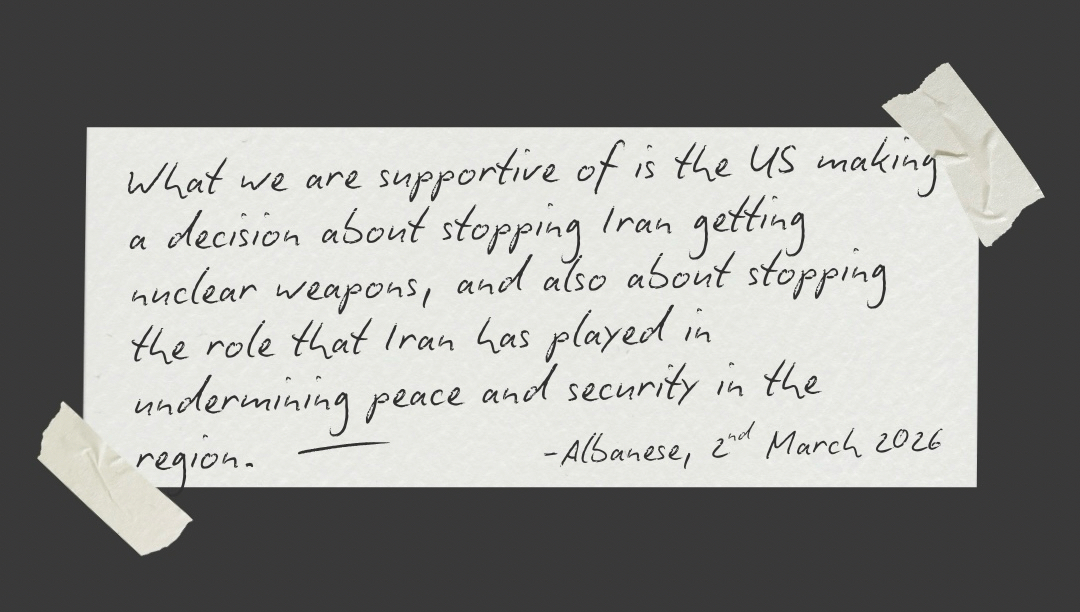 What we are supportive of is the US making
a decision about stopping Iran getting
nuclear weapons, and also about stopping
the role that Iran has played in
undermining peace and security in the
region.
-Albanese, 2nd March 2026